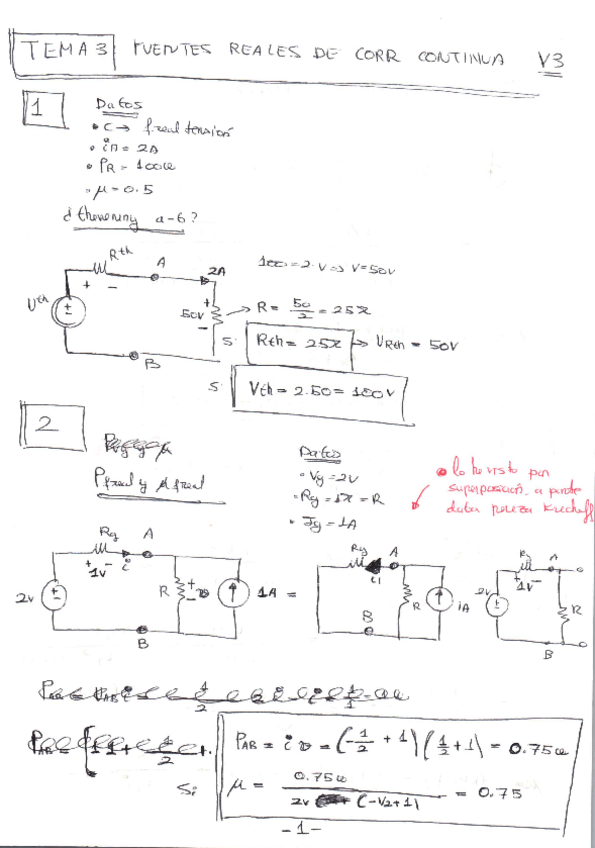 TEMA 3 FUENTES REALES DE CORR CONTINUA V3
1
Datos
• C → freal tensión
• iA = 2A
• PR = 100w
• μ = 0.5
d thevening a-b?
Rth
A
2A
+ -
Uth
+
50V
-
B
100 = 2·V ⇒ V = 50V
→ R = 50/2 = 25Ω
Si Rth = 25Ω → URth = 50V
Si Vth = 2·50 = 100V
2
Pfreal y μ freal
Datos
• Vg = 2V
• Rg = 1Ω = R
• Ig = 1A
• lo he visto por
superposición, a parte
daba pereza Kirchoff
Rg A
+ 1V - i
2V
R
+ v -
1A =
B
Rg A
i1
R
1A
B
Rg A
+ 1V -
2V
R
B
PAB = i v = (-1/2 + 1)(1/2 + 1) = 0.75w
Si μ = 0.75w / 2V (-1/2+1) = 0.75
-1-